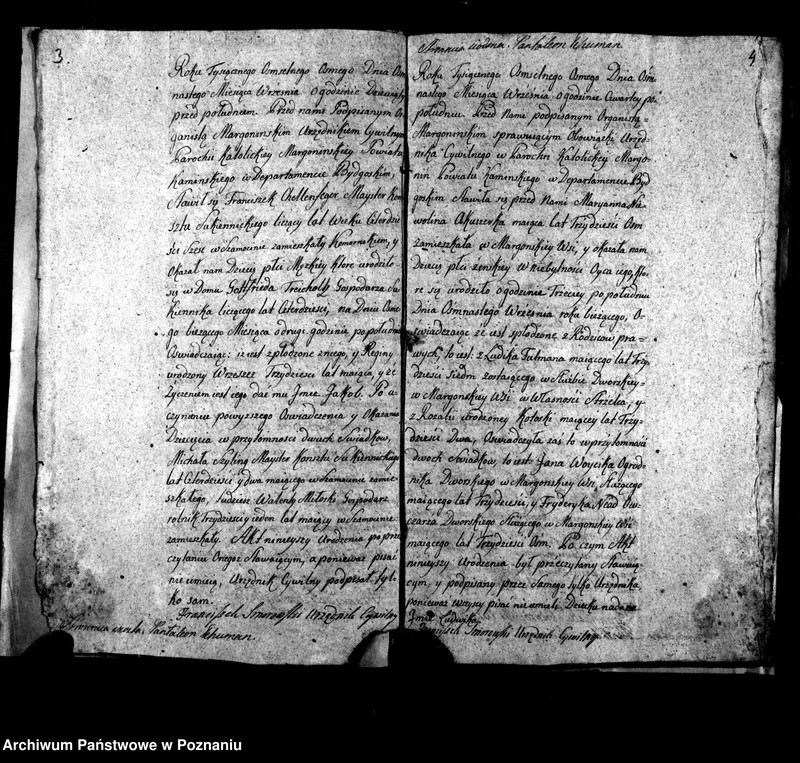 3.
Roku Tysiącznego Osmsetnego Osmego Dnia Os
nastego Miesiąca Września o godzinie Dziewiątey
przed południem. Przed nami Podpisanym Or
ganistą Margoninskim Urzędnikiem Cywilnym
Parochii Katolickiey Margoninskiey Powiatu
Kaminskiego w Departamencie Bydgoskim,
Stawił się Franciszek Majster Kon
sztu Sukiennickiego liczący lat Wieku Czterdzie
ści Szesc w Szamocinie zamieszkały Komornikiem, y
Okazał nam Dziecię płci Męzkiey ktore urodziło
się w Domu Gottfrieda Treichold Gospodarza Su
kiennika liczącego lat Czterdziesci, na Dniu Osme
go bieżącego Miesiąca o drugi godzinie po południu
Oswiadczaiąc: iż iest zpłodzone z niego, y Reginy
urodzony Wrzeszcz Trzydziesci lat maiącą, y że
Życzeniem iest iego dać mu Jmie Jakob. Po u-
czynieniu powyższego Oswiadczenia y Okazania
Dziecięcia w przytomnosci dwuch Swiadkow,
Michała Szyling Mayster Konsztu Sukiennickiego
lat Czterdziesci y dwa maiącego w Szamocinie zamie
szkałego, tudziesz Walenty Miloski Gospodarz
rolnik Trzydziesci y ieden lat maiący w Szamocinie
zamieszkały. Akt ninieyszy Urodzenia po prze
czytaniu Onegoż Stawaiącym, a ponieważ pisać
nie umieią, Urzędnik Cywilny podpisał tyl-
ko sam.
Urzędnik Cywilny
Stronnica czwła, Pantaleon Schuman.
Stronnica Pantaleon Schuman.
4.
Roku Tysiącznego Osmsetnego Osmego Dnia Osm
nastego Miesiąca Września o godzinie Czwartey po
południu. Przed Nami podpisanym Organistą
Margoninskim sprawuiącym Obowiązki Urzęd-
nika Cywilnego w Parochii Katolickey Margo-
nin Powiatu Kaminskiego w Departamencie Byd
goskim Stawiła się przed Nami Maryanna Na
wolina Akuszerka maiąca lat Trzydziesci Osm
zamieszkała w Margonskiey Wsi, y okazała nam
Dziecię płci żenskiey w Niebytnosci Oyca iego, kto
re się urodziło o godzinie Trzeciey po południu
Dnia Osmnastego Września roku bieżącego, O-
swiadczaiąc że iest spłodzone z Rodzicow pra-
wych, to iest: z Ludwika Fulmana maiącego lat Trzy
dziesci Siedm zostaiącego w Służbie Dworskiey
w Margonskiey Wsi w Własnosci Strzelca, y
z Rozalii urodzoney Kotoski maiącey lat Trzy-
dziesci Dwa, Oswiadczyła zaś to w przytomnosci
dwoch Swiadkow, to iest: Jana Woycika Ogrod-
nika Dworskiego w Margonskiey Wsi, Służącego
maiącego lat Trzydziesci, y Fryderyka Nead Ow
czarza Dworskiego Służącego w Margonskiey Wsi
maiącego lat Trzydziesci Osm. Po czym Akt
ninieyszy Urodzenia był przeczytany Stawaią
cym, y podpisany przez Samego tylko Urzędnika,
ponieważ wszyscy pisać nie umieli. Dziecku nadano
Jmie Ludwika
Urzędnik Cywilny
Archiwum Państwowe w Poznaniu